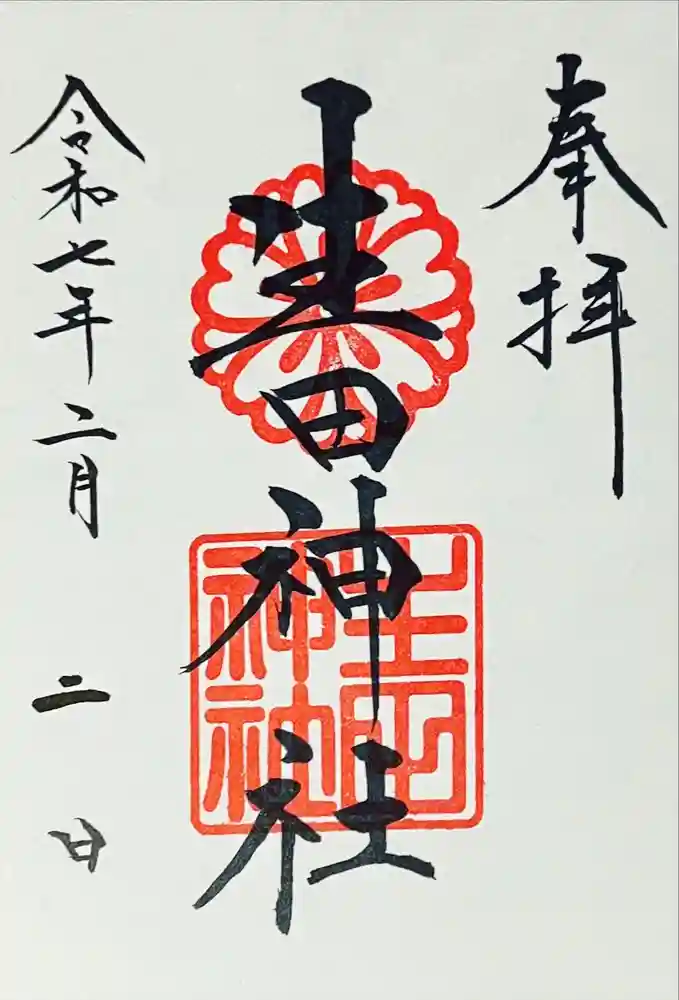 奉拝
生田神社
生田
神社
令和七年二月二日